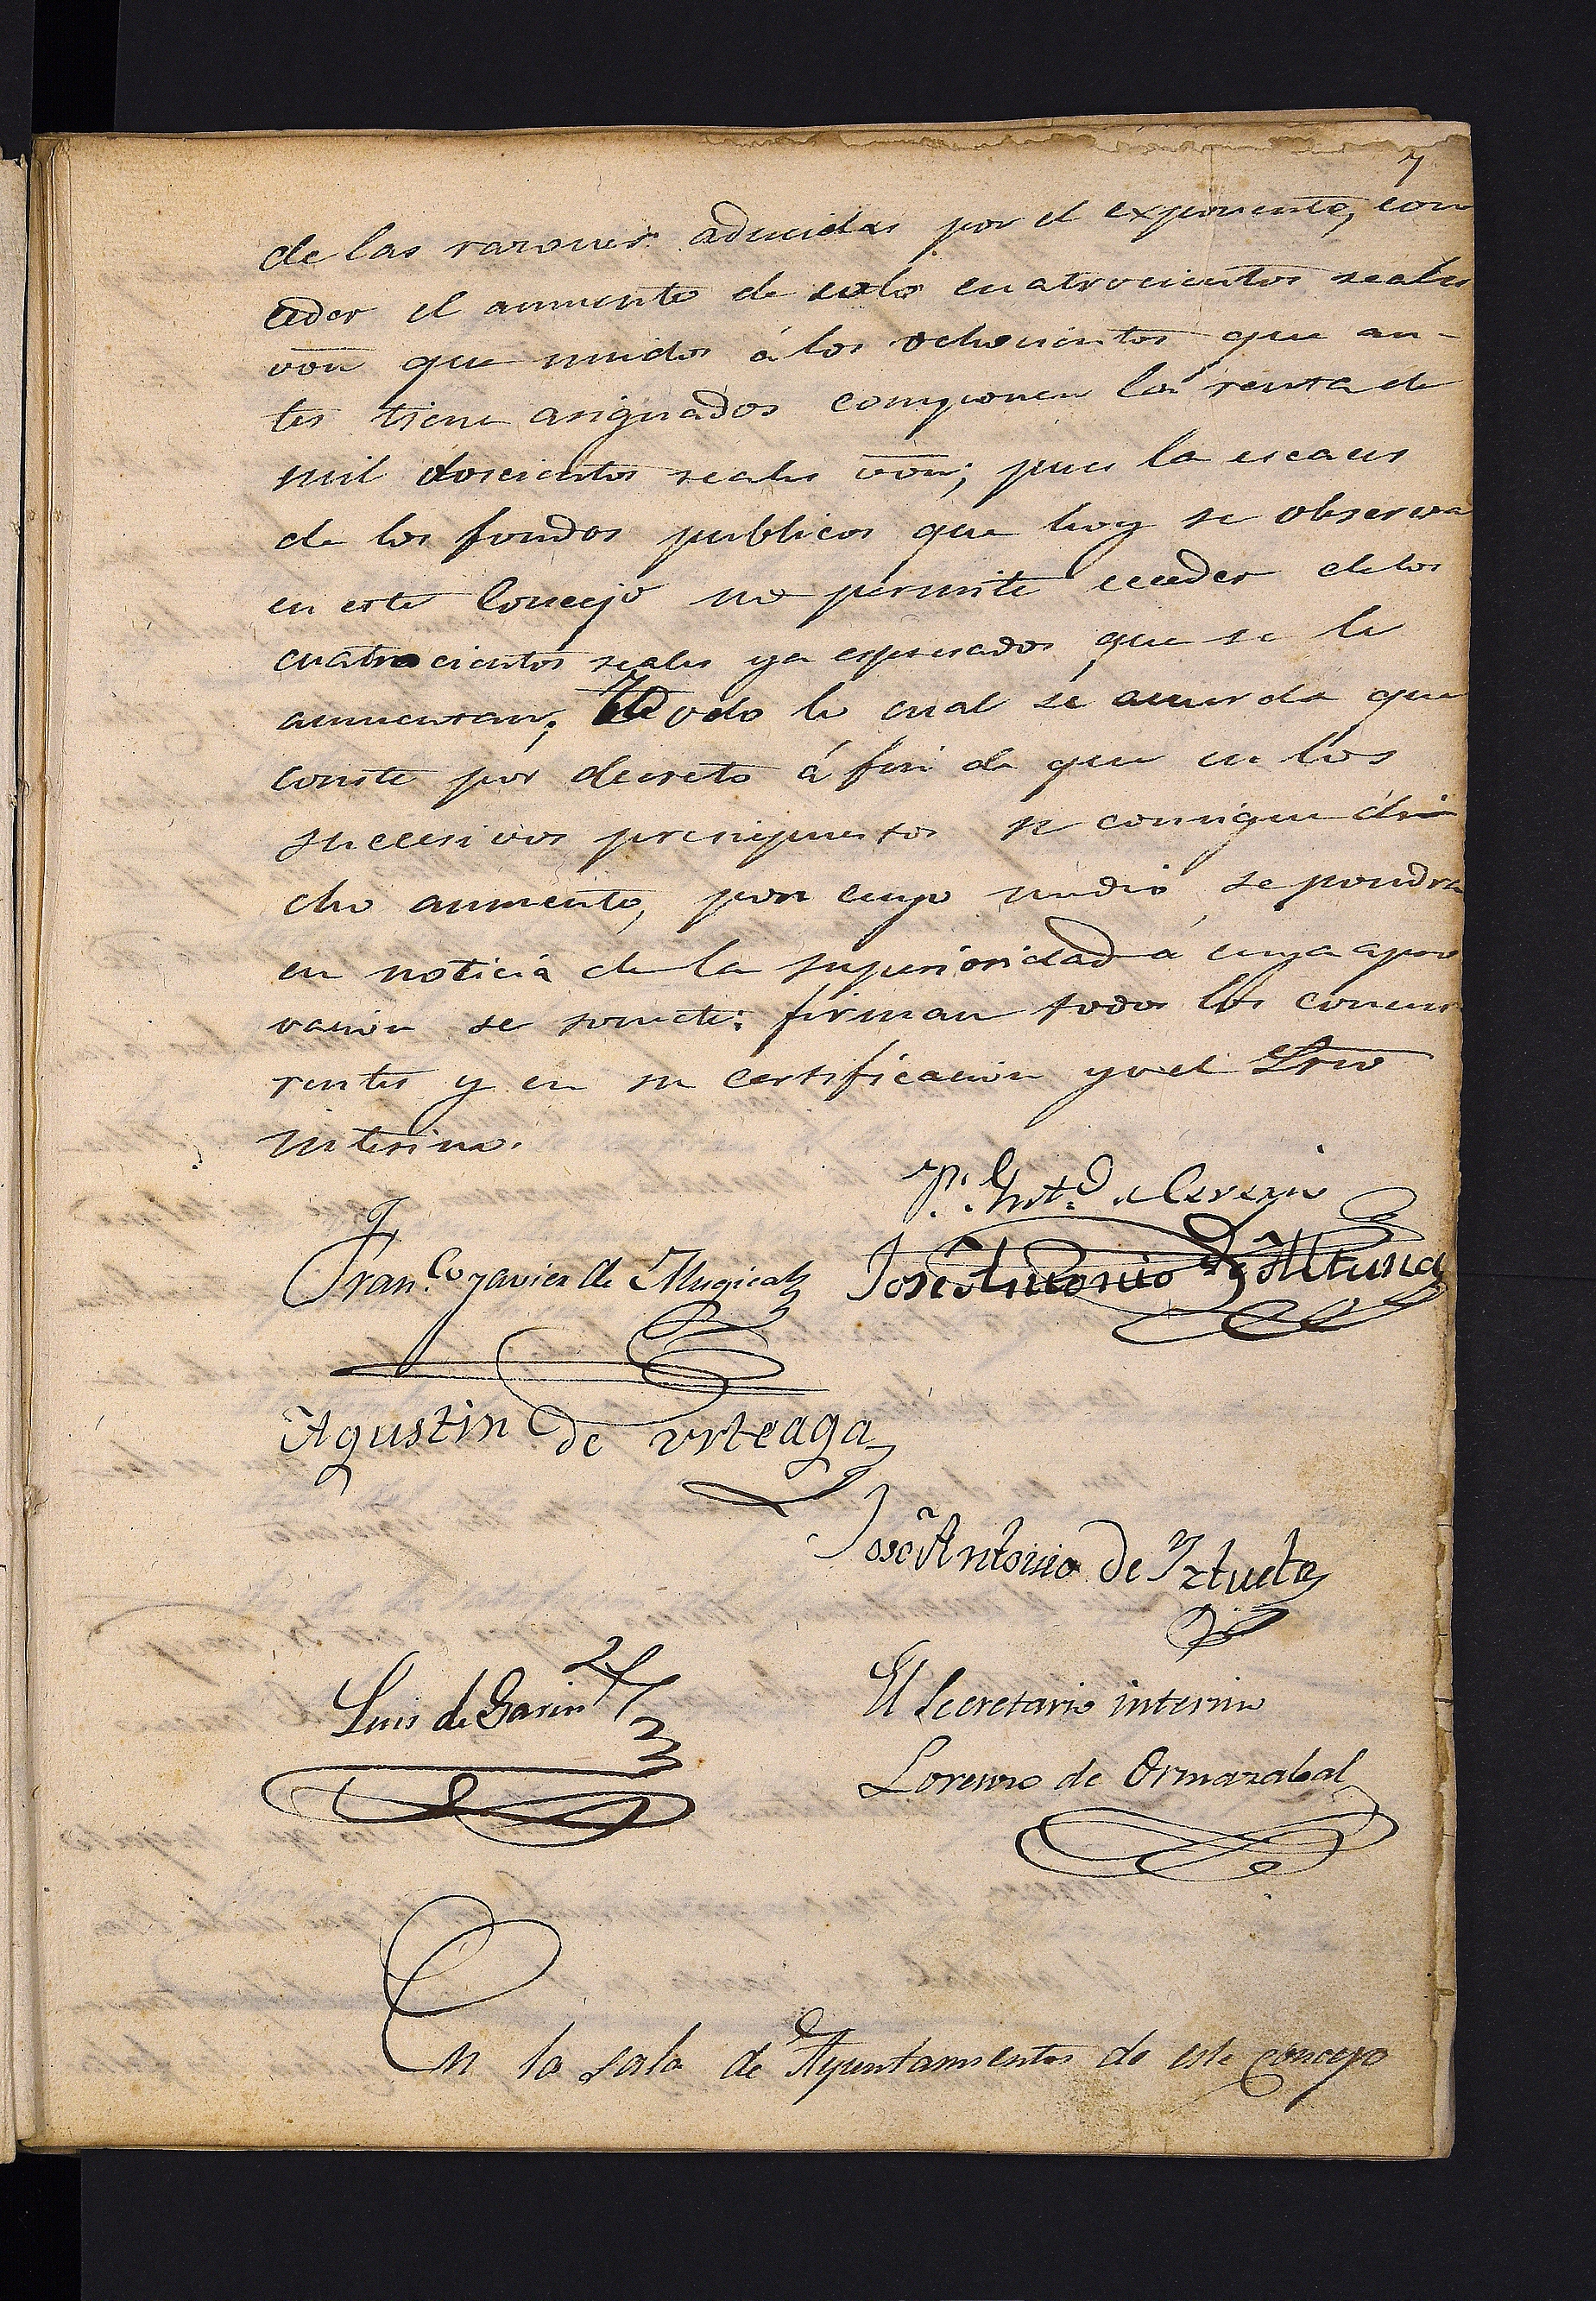 7
de las razones aducidas por el exponente, con
ceder el aumento de solo cuatrocientos reales
von que unidos á los ochocientos que an-
tes tiene asignados componen la renta de
mil doscientos reales von; pues la escaces
de los fondos publicos que hoy se observa
en este Concejo no permite eceder de los
cuatrocientos reales ya espresados que se le
aumentan; Todo lo cual se acuerda que
conste por decreto á fin de que en los
succesivos presupuestos se consigne di
cho aumento, por cuyo medio se pondra
en noticia de la superioridad á cuya apro
vacion se somete: firman todos los concur
rentes y en su certificacion yo el Srio
interino.
Fran.co Xavier de Mugica
Jose Antonio de Altuna
Agustin de Urteaga
José Antonio de Yztueta
Luis de Garin
El Secretario interino
Lorenzo de Ormazabal
En la sala de Ayuntamientos de este concejo